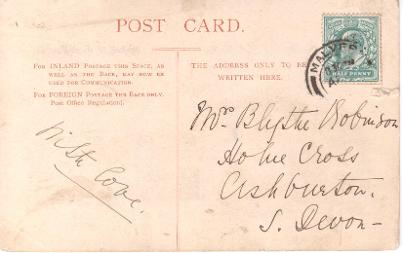 POST CARD.
FOR INLAND POSTAGE THIS SPACE, AS
WELL AS THE BACK, MAY NOW BE
USED FOR COMMUNICATION.
FOR FOREIGN POSTAGE THE BACK ONLY.
Post Office Regulation.
THE ADDRESS ONLY TO BE
WRITTEN HERE.
MALVER
HALF PENNY
With Love.
Mrs Blythe Robinson
Holne Cross
Ashburton.
S. Devon-